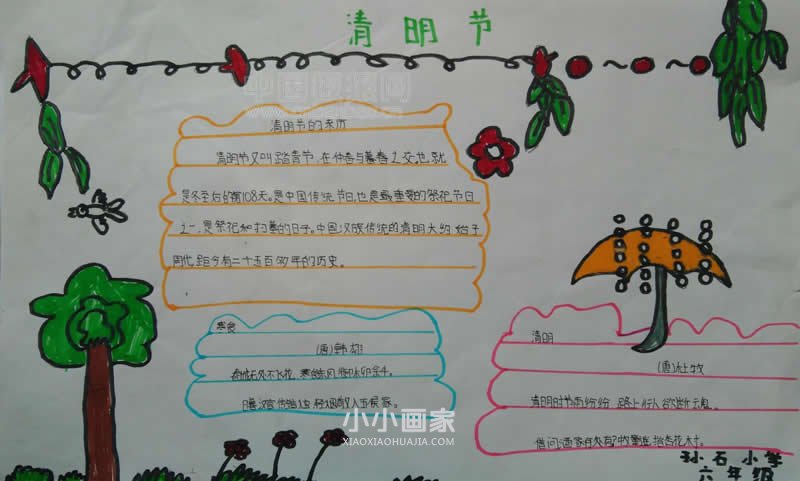 清明节
清明节的来历
清明节又叫踏青节,在仲春与暮春之交,也就
是冬至后的第108天。是中国传统节日,也是最重要的祭祀节日
之一,是祭祀和扫墓的日子。中国汉族传统的清明大约始于
周代,距今有二千五百多年的历史。
寒食
(唐)韩翃
春城无处不飞花,寒食东风御柳斜。
日暮汉宫传蜡烛,轻烟散入五侯家。
清明
(唐)杜牧
清明时节雨纷纷,路上行人欲断魂。
借问酒家何处有?牧童遥指杏花村。
小小画家
XIAOXIAOHUAJIA.COM
孙石小学
六年级